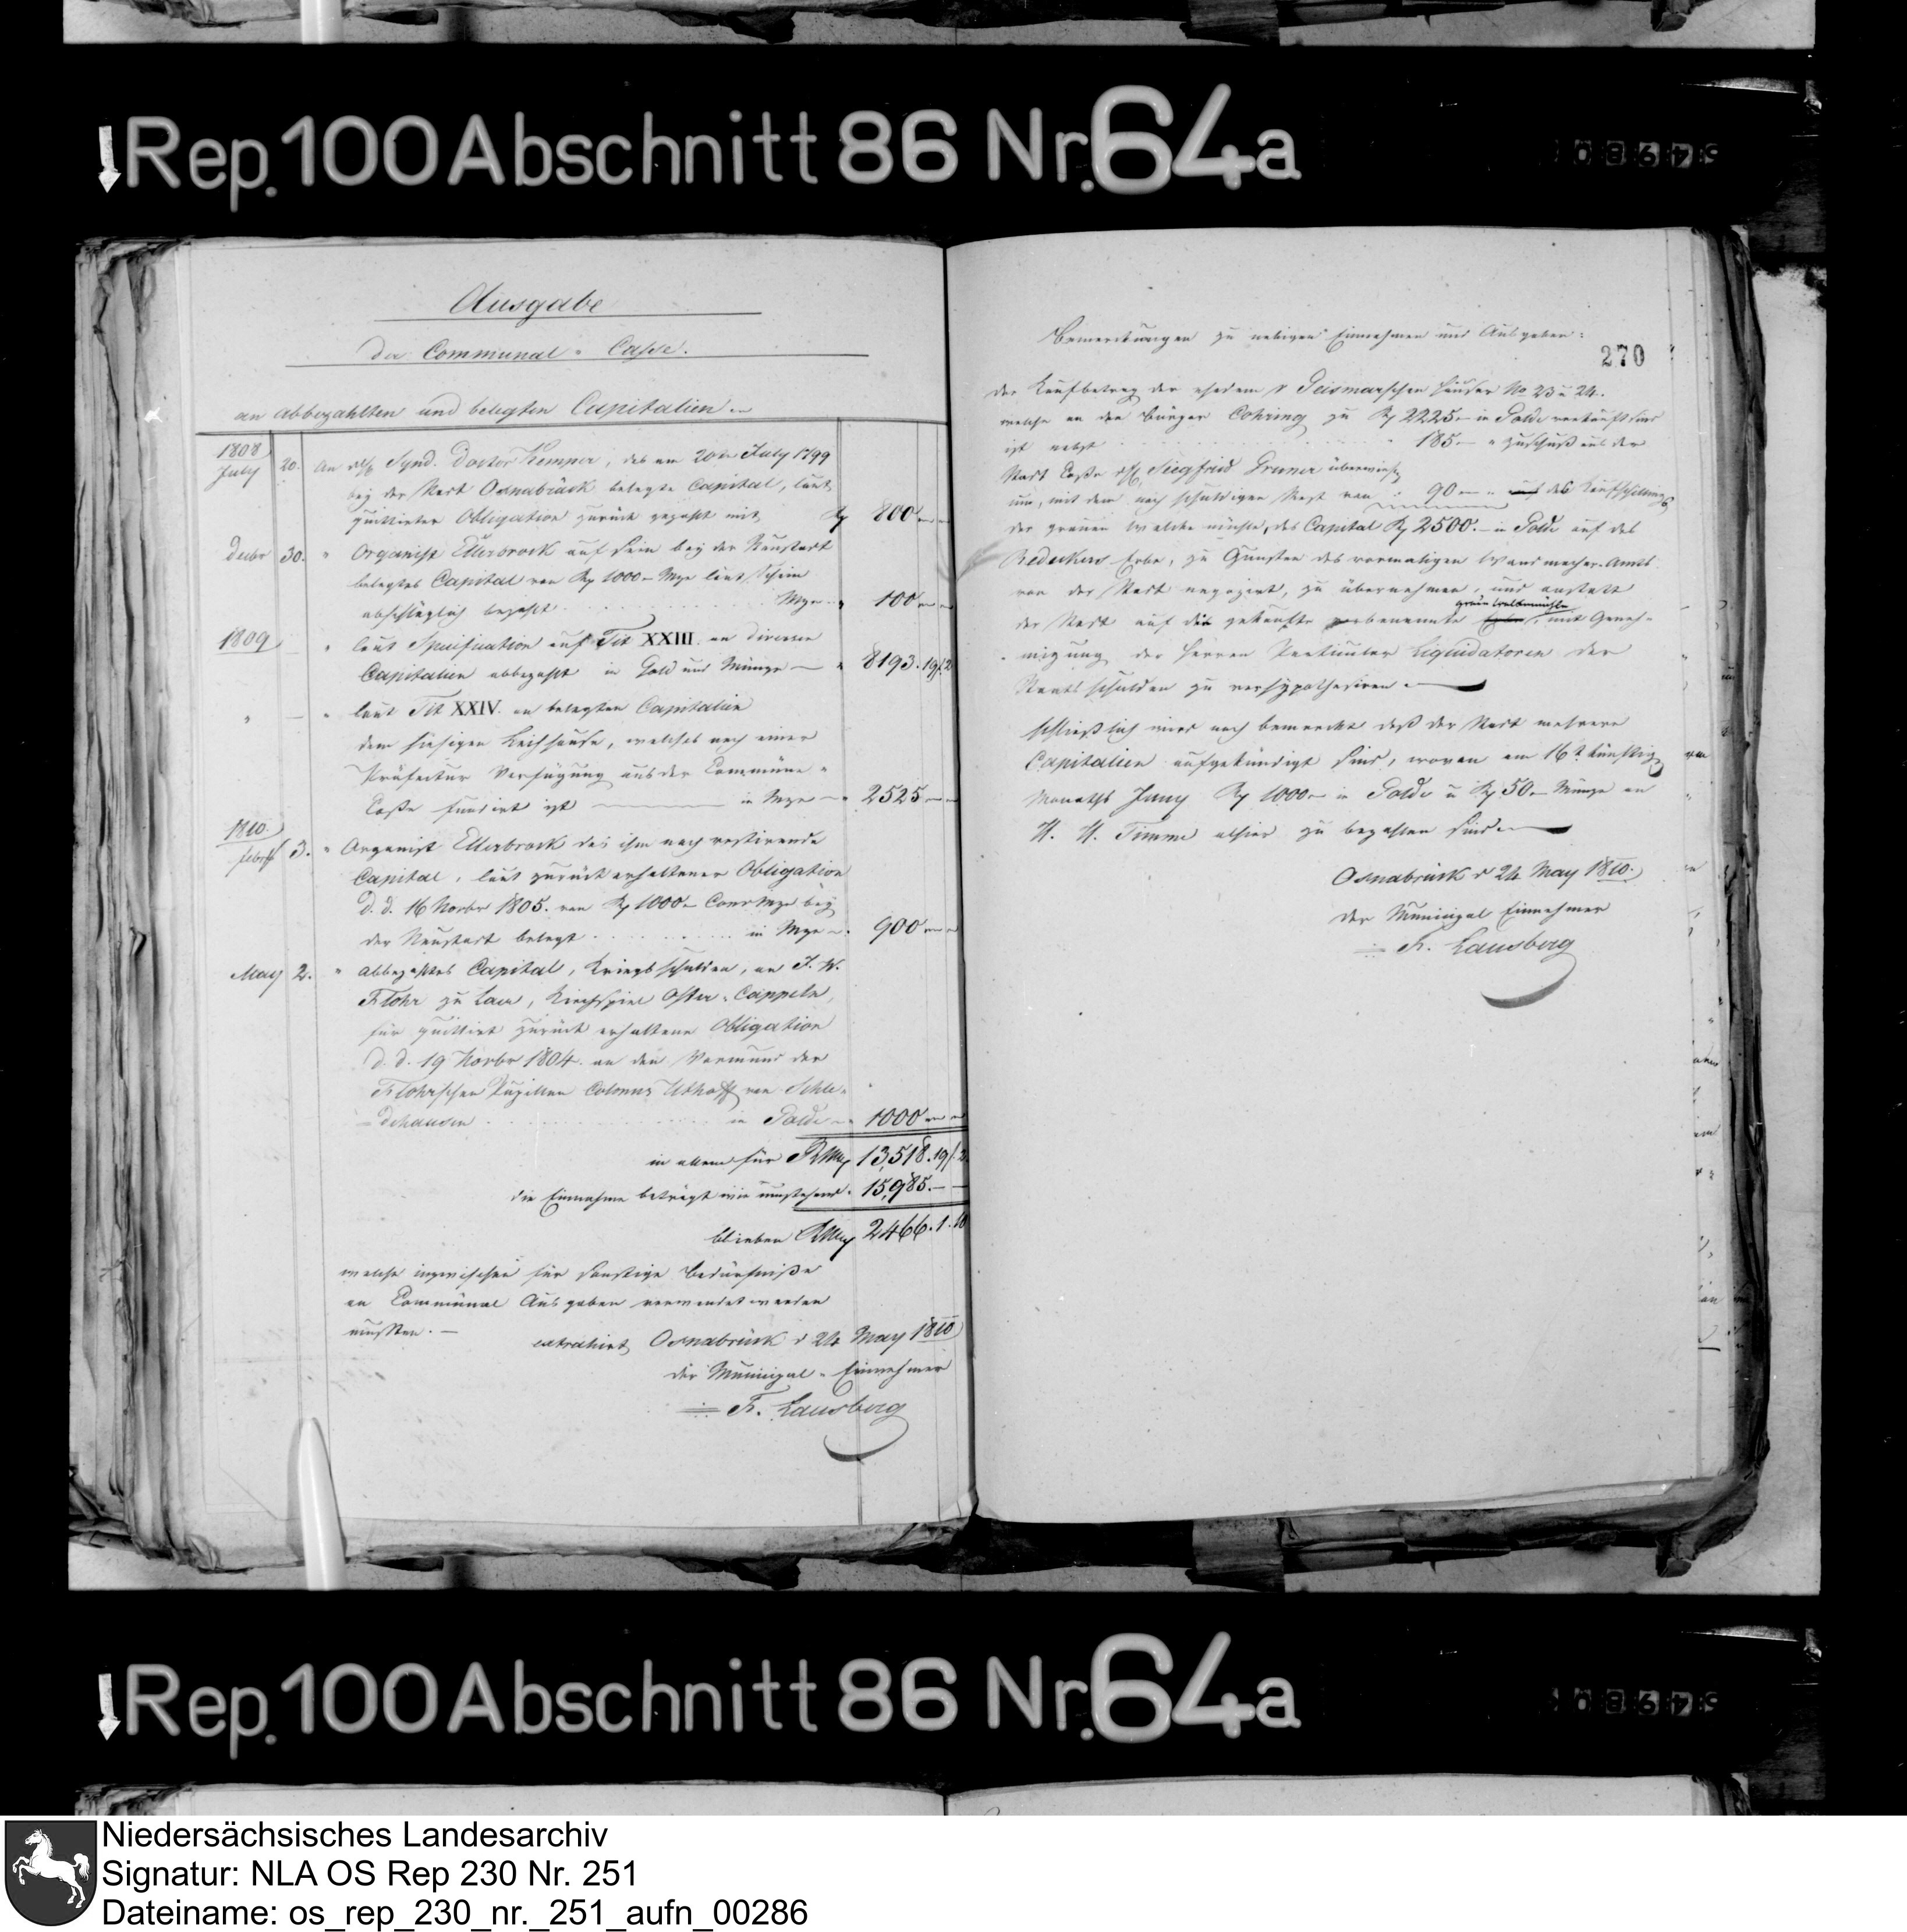 Rep. 100 Abschnitt 86 Nr. 64a
Ausgabe
der Communal-Casse.
an abbezahlten und belegten Capitalien
1808
July 20. An Synd. Doctor Kemper, das am 20ten July 1799
bey der Stadt Osnabrück belegte Capital, laut
quittirter Obligation zurück gezahlt mit Rt 800 — —
Decbr 30. " Organist Ellerbrock auf sein bey der Neustadt
belegtes Capital von Rt 1000 — Mze laut Schein
abschläglich bezahlt . . . . Mze — " 100 — —
1809 — " laut Specification auf Tit XXIII. an diversen
Capitalien abbezahlt in Gold und Münze — " 8193. 19/. 2
" — " laut Tit XXIV. an belegten Capitalien
dem hiesigen Leihhause, welches nach einer
Präfectur Verfügung aus der Commüne-
Casse fundirt ist — in Mze — " 2525 — —
1810.
Febr 3. " Organist Ellerbrock das ihm noch restirende
Capital, laut zurück erhaltener Obligation
d. d. 16 Novbr 1805. von Rt 1000 — Conv Mze bey
der Neustadt belegt . . . . in Mze — " 900 — —
May 2. " abbezahltes Capital, Kriegsschulden, an J. W.
Flohr zu Laer, Kirchspiel Oster-Cappeln,
für quittirt zurück erhaltene Obligation
d. d. 19 Novbr 1804. an den Vormund der
Flohrschen Pupillen Colonus Uthoff von Schle-
dehausen . . . . in Golde — " 1000 — —
in allem für 13,518. 19/. 2
die Einnahme beträgt wie umstehend. 15,985. — —
blieben 2466. 1. 10
welche inzwischen für sonstige Bedürfniße
an Communal Ausgaben verwendet werden
mußten. —
extrahirt Osnabrück d 24 May 1810
der Municipal-Einnehmer
Fr. Lausberg
Bemerckungen zu nebigen Einnahmen und Ausgaben:
270
Der Kaufbetrag der ehedem v Geismarschen Häuser No 23 u 24.
welche an den Bürger Cohring zu Rt 2225 — in Golde verkauft sind
ist nebst . . . . " 185 — " Zuschuß aus der
Stadt Casse Siegfried Gruner überwiesen
um, mit dem noch schuldigen Rest von " 90 — " des Kaufschillings
der grauen Walcke mühle, das Capital Rt 2500. — in Golde auf das
Redeckers Erbe, zu Gunsten des vormaligen Wandmacher-Amts
von der Stadt negozirt, zu übernehmen, und anstatt
graue Walckemühle
der Stadt auf die gekaufte benannte , mit Geneh-
migung der Herren Particular Liquidatoren der
Staatsschulden zu verhypothesiren. —
Schließlich wird noch bemerckt daß der Stadt mehrere
Capitalien aufgekündigt sind, wovon am 16t künftigen
Monaths Juny Rt 1000 — in Golde u Rt 50 — Münze an
H. H. Timme alhier zu bezahlen sind. —
Osnabrück d 24 May 1810.
Der Municipal Einnehmer
Fr. Lausberg
Rep. 100 Abschnitt 86 Nr. 64a
Niedersächsisches Landesarchiv
Signatur: NLA OS Rep 230 Nr. 251
Dateiname: os_rep_230_nr._251_aufn_00286